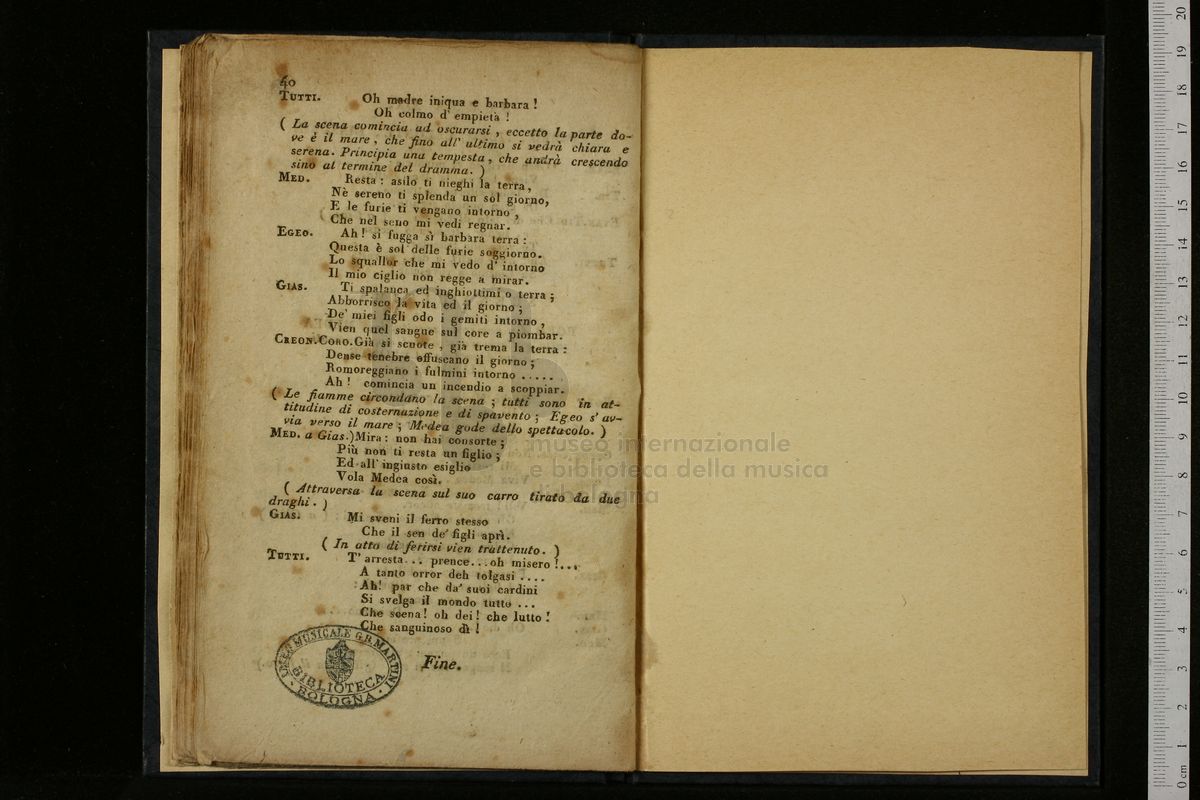 40
TUTTI. Oh madre iniqua e barbara !
Oh colmo d' empietà !
( La scena comincia ad oscurarsi , eccetto la parte do-
ve è il mare , che fino all' ultimo si vedrà chiara e
serena. Principia una tempesta , che andrà crescendo
sino al termine del dramma. )
MED. Resta : asilo ti nieghi la terra,
Nè sereno ti splenda un sol giorno,
E le furie ti vengano intorno ,
Che nel seno mi vedi regnar.
EGEO. Ah ! si fugga sì barbara terra :
Questa è sol delle furie soggiorno.
Lo squallor che mi vedo d' intorno
Il mio ciglio non regge a mirar.
GIAS. Ti spalanca ed inghiottimi o terra ;
Abborrisco la vita ed il giorno ;
De' miei figli odo i gemiti intorno ,
Vien quel sangue sul core a piombar.
CREON.CORO.Già si scuote , già trema la terra :
Dense tenebre offuscano il giorno ;
Romoreggiano i fulmini intorno .....
Ah ! comincia un incendio a scoppiar.
( Le fiamme circondano la scena ; tutti sono in at-
titudine di costernazione e di spavento ; Egeo s' av-
via verso il mare ; Medea gode dello spettacolo. )
MED. a Gias.) Mira : non hai consorte ;
Più non ti resta un figlio ;
Ed all' ingiusto esiglio
Vola Medea così.
( Attraversa la scena sul suo carro tirato da due
draghi . )
GIAS. Mi sveni il ferro stesso
Che il sen de' figli aprì.
( In atto di ferirsi vien trattenuto. )
TUTTI. T' arresta... prence...oh misero !...
A tanto orror deh tolgasi ....
Ah! par che da' suoi cardini
Si svelga il mondo tutto ...
Che scena ! oh dei ! che lutto !
Che sanguinoso dì !
Fine.
MUSICALE G.B. MARTINI
BIBLIOTECA
BOLOGNA
museo internazionale
e biblioteca della musica
di bologna
0 cm 1 2 3 4 5 6 7 8 9 10 11 12 13 14 15 16 17 18 19 20